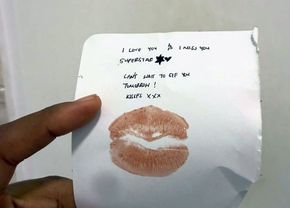 I LOVE YOU & I MISS YOU
SUPERSTAR ★♥
CAN'T WAIT TO SEE YOU
TOMORROW!
KISSES XXX